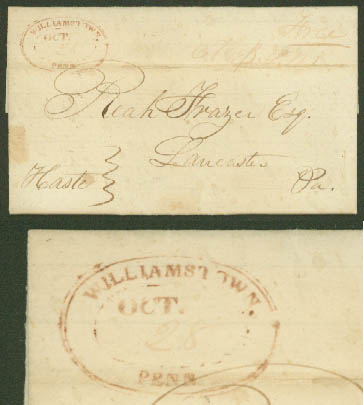 WILLIAMSTOWN.
OCT.
PENN
Free
Reah Frazer Esq.
Lancaster
Haste
Pa.
WILLIAMSTOWN.
OCT.
28
PENN